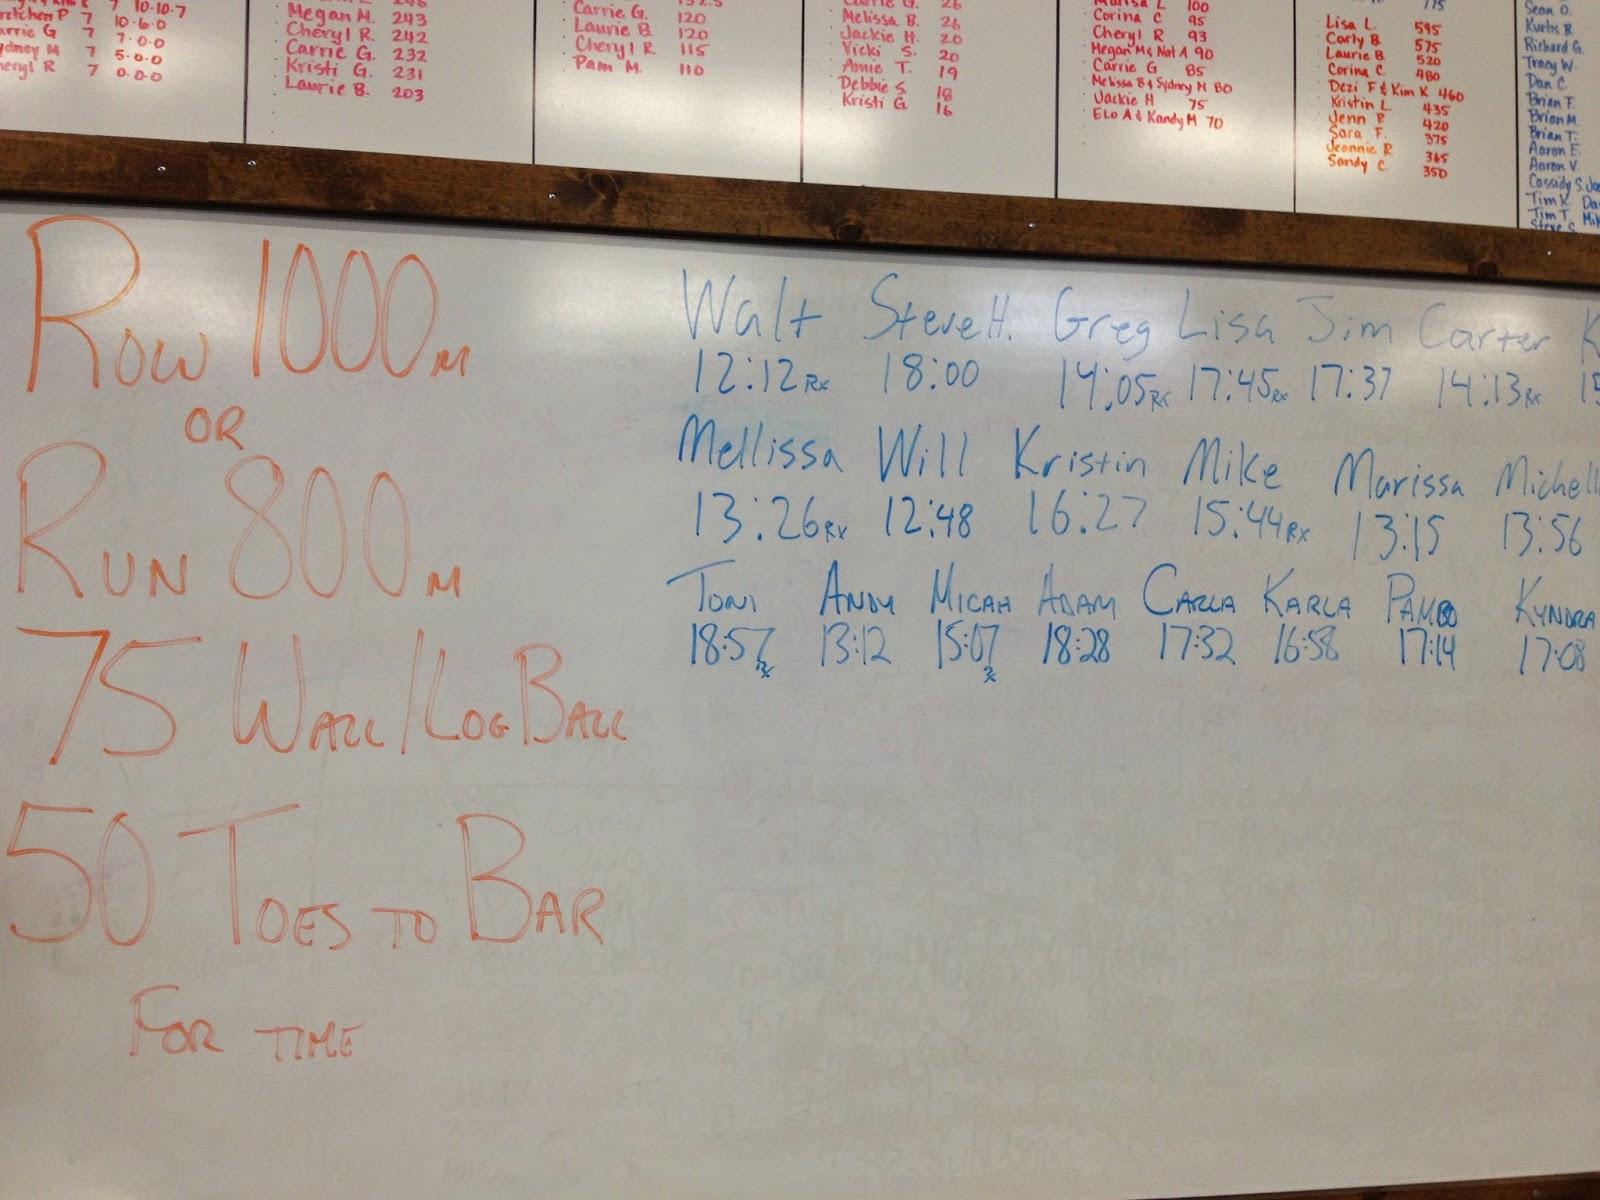 7 10-10-7
retchen P 7 10-6-0
arrie G 7 7-0-0
ydney M 7 5-0-0
heryl R 7 0-0-0
Megan M. 243
Cheryl R. 242
Carrie G. 232
Kristi G. 231
Laurie B. 203
Carrie G. 120
Laurie B. 120
Cheryl R 115
Pam M. 110
26
Melissa B. 26
Jackie H. 20
Vicki S. 20
Amie T. 19
Debbie S. 18
Kristi G 16
Marisa L 100
Corina C 95
Cheryl R 93
Megan M & Nat A 90
Carrie G 85
Melissa B & Sydney M 80
Jackie H 75
Elo A & Kandy M 70
175
Lisa L. 595
Carly B. 575
Laurie B. 520
Corina C. 480
Dezi F & Kim K 460
Kristin L. 435
Jenn P. 420
Sara F. 375
Jeannie R. 365
Sandy C. 350
Sean O.
Kurtis B.
Richard G.
Tracy W.
Dan C.
Brian F.
Brian M.
Brian T.
Aaron E.
Aaron V.
Cassidy S.
Tim K.
Tim T. Mik
Steve S.
Row 1000m
OR
Run 800m
75 Wall/Log Ball
50 Toes to Bar
For Time
Walt Steve H. Greg Lisa Jim Carter K
12:12 Rx 18:00 14:05 Rx 17:45 Rx 17:37 14:13 Rx 15
Mellissa Will Kristin Mike Marissa Michell
13:26 Rx 12:48 16:27 15:44 Rx 13:15 13:56
Toni Andy Micah Adam Carla Karla Pambo Kyndra
18:57 Rx 13:12 15:07 Rx 18:28 17:32 16:58 17:14 17:08